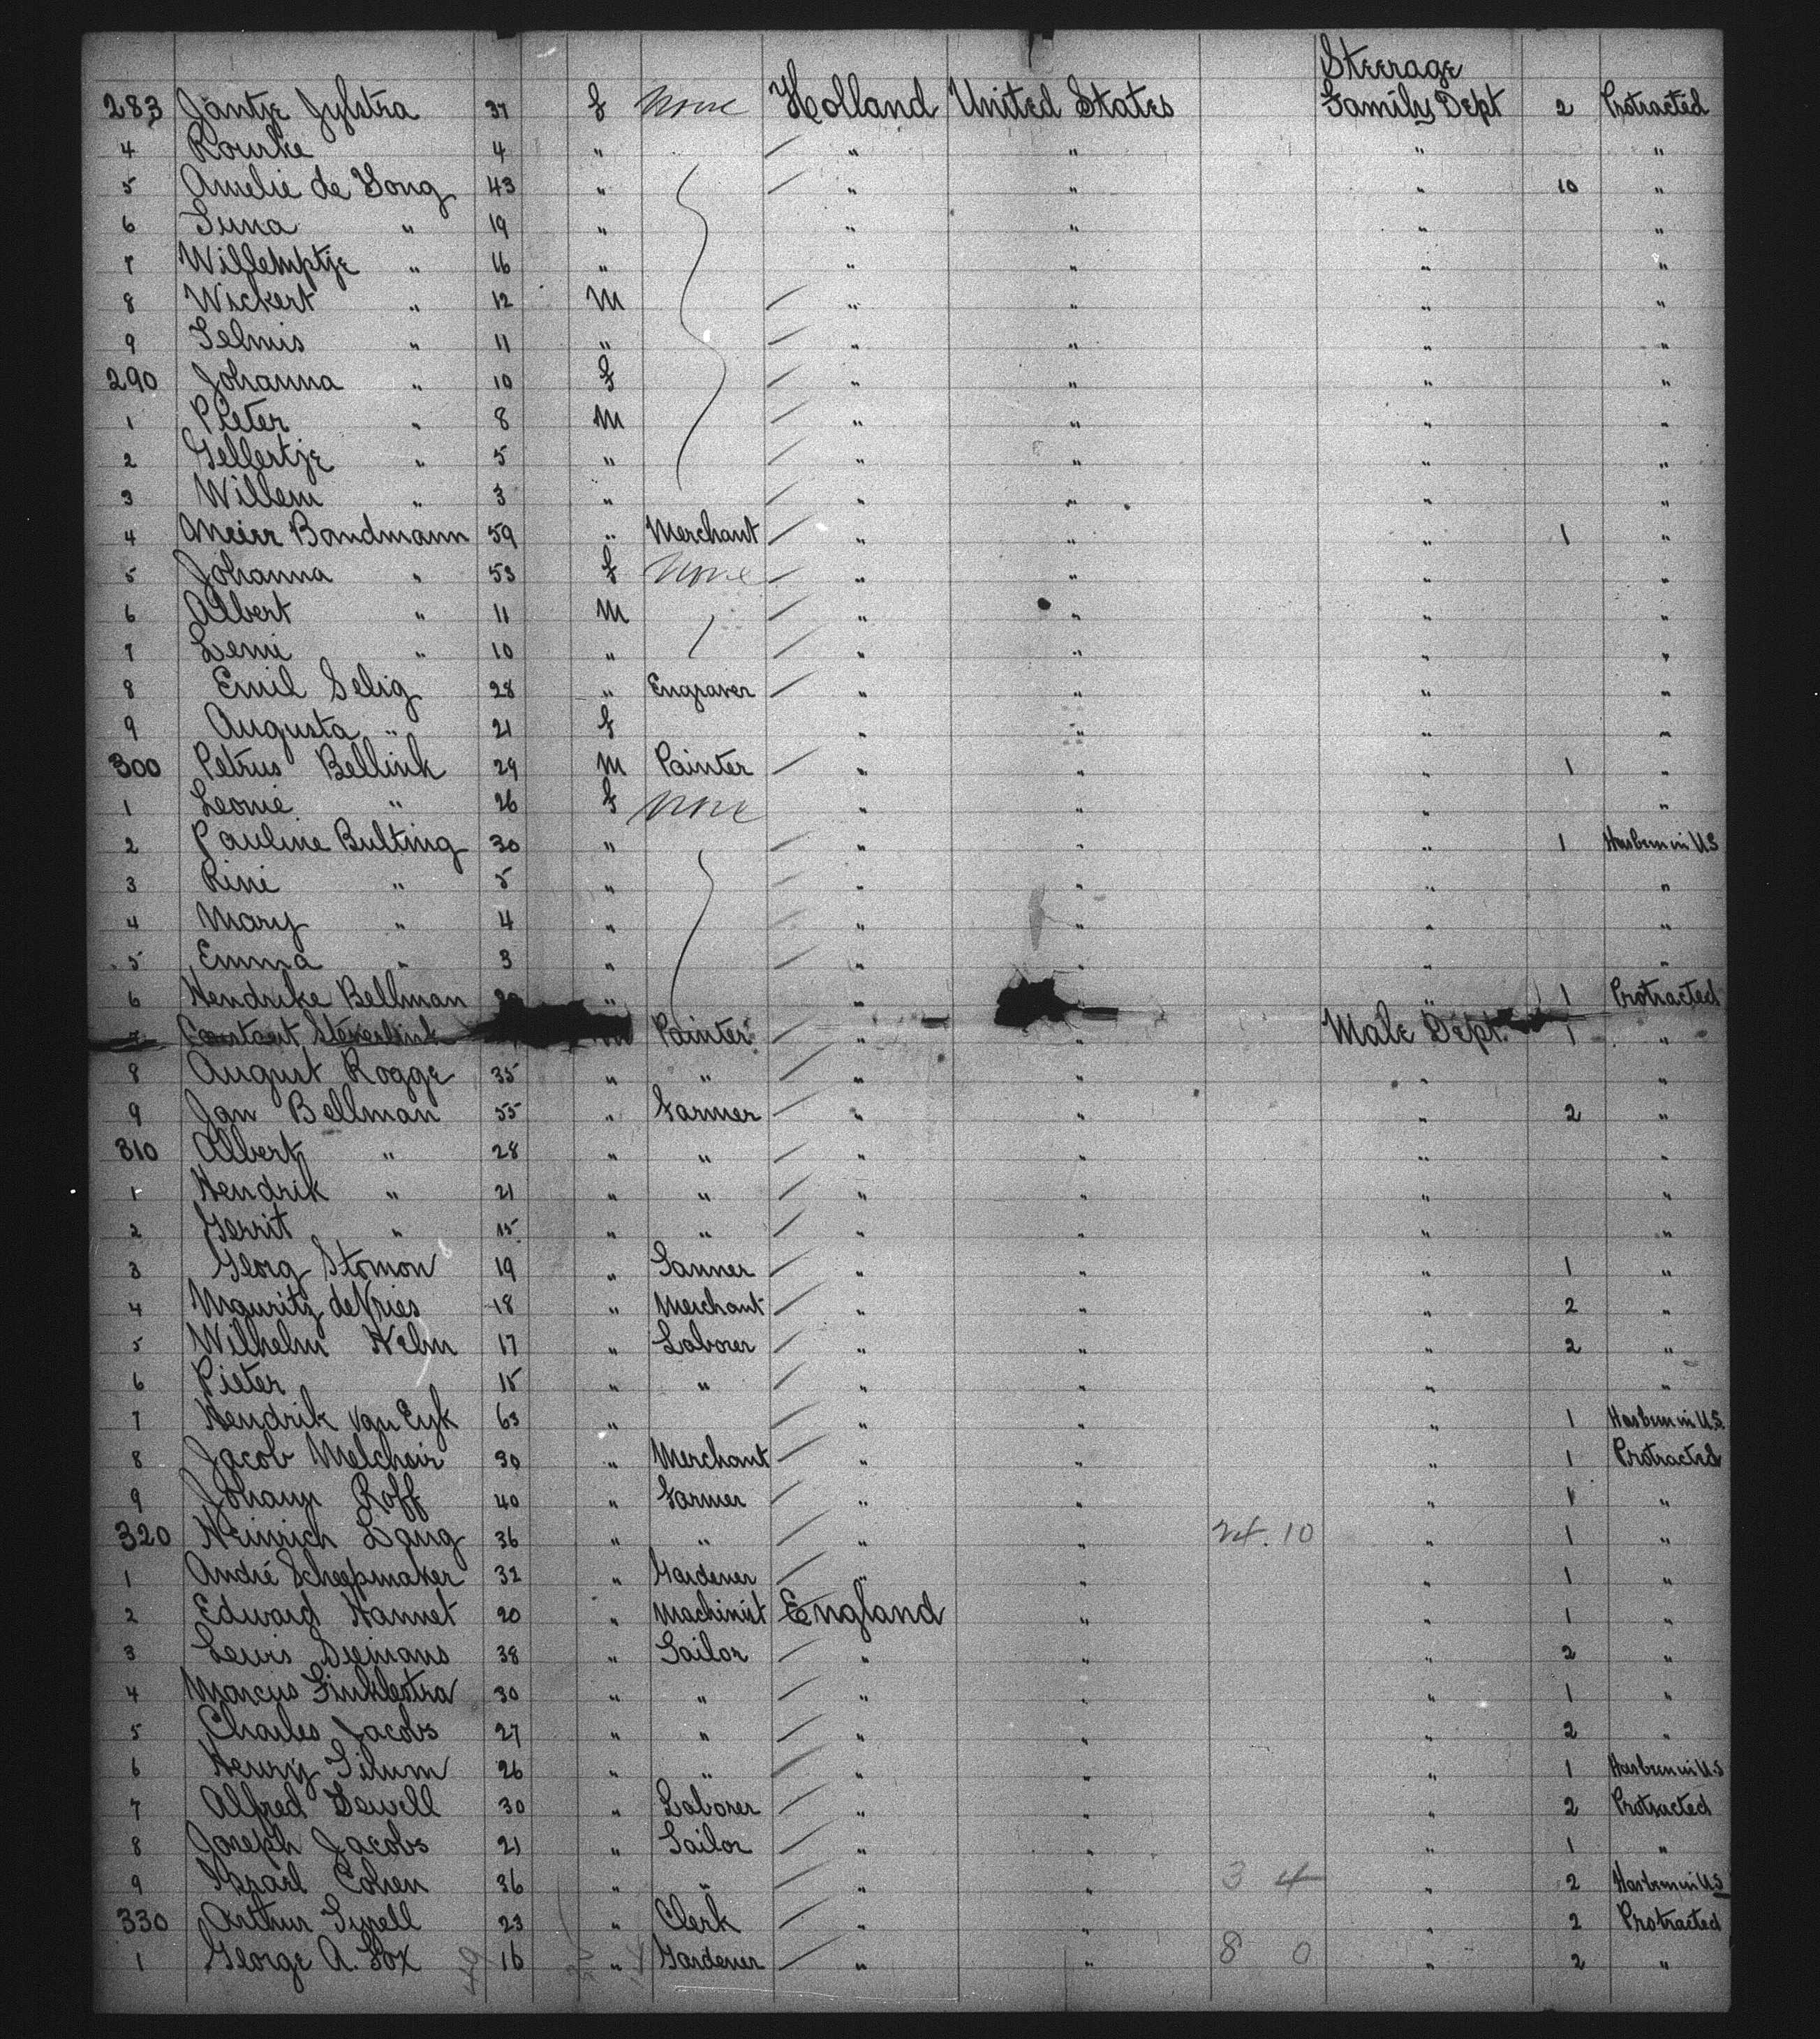 Steerage
283 Jantje Jylstra 37 f None Holland United States Family Dept 2 Protracted
4 Rourke 4 " " " " "
5 Amelie de Yong 43 " " " " 10 "
6 " 19 " " " " "
7 Willemptje " 16 " " " " "
8 Wickert " 12 M " " " "
9 " 11 " " " " "
290 Johanna " 10 f " " " "
1 Pieter " 8 M " " " "
2 Gellertje " 5 " " " " "
3 Willem " 3 " " " " "
4 Meier Bandmann 59 " Merchant " " " 1 "
5 Johanna " 53 f None " " " "
6 Albert " 11 M " " " "
7 " 10 " " " " "
8 Emil Selig 28 " Engraver " " " "
9 Augusta " 21 f " " " "
300 Petrus Bellink 29 M Painter " " " 1 "
1 Leonie " 26 f None " " " "
2 Pauline Bulting 30 " " " " 1 Has been in U.S
3 Rini " 5 " " " " "
4 Mary " 4 " " " " "
5 Emma " 3 " " " " "
6 Hendrike Bellman " " " 1 Protracted
7 Constant Steverlink Painter " " Male Dept. 1 "
8 August Rogge 35 " " " " " "
9 Jan Bellman 55 " Farmer " " " 2 "
310 Albert " 28 " " " " " "
1 Hendrik " 21 " " " " " "
2 Gerrit " 15 " " " " " "
3 Georg Stomon 19 " Tanner " " " 1 "
4 Mauritz de Vries 18 " Merchant " " " 2 "
5 Wilhelm Helm 17 " Laborer " " " 2 "
6 Pieter 15 " " " " " "
7 Hendrik van Eyk 63 " " " " 1 Has been in U.S.
8 Jacob Melchoir 30 " Merchant " " " 1 Protracted
9 Johann Roff 40 " Farmer " " " 1 "
320 Heinrich Lang 36 " " " " 24.10 " 1 "
1 André Scheepmaker 32 " Gardener " " " 1 "
2 Edward Hannet 20 " Machinist England " " 1 "
3 Lewis 38 " Sailor " " " 2 "
4 Marcus Finklestra 30 " " " " " 1 "
5 Charles Jacobs 27 " " " " " 2 "
6 Henry 26 " " " " " 1 Has been in U.S
7 Alfred Sewell 30 " Laborer " " " 2 Protracted
8 Joseph Jacobs 21 " Sailor " " " 1 "
9 Israel Cohen 36 " " " " 3 4 " 2 Has been in U.S
330 Arthur 23 " Clerk " " " 2 Protracted
1 George A. Fox 16 " Gardener " " 8 0 " 2 "